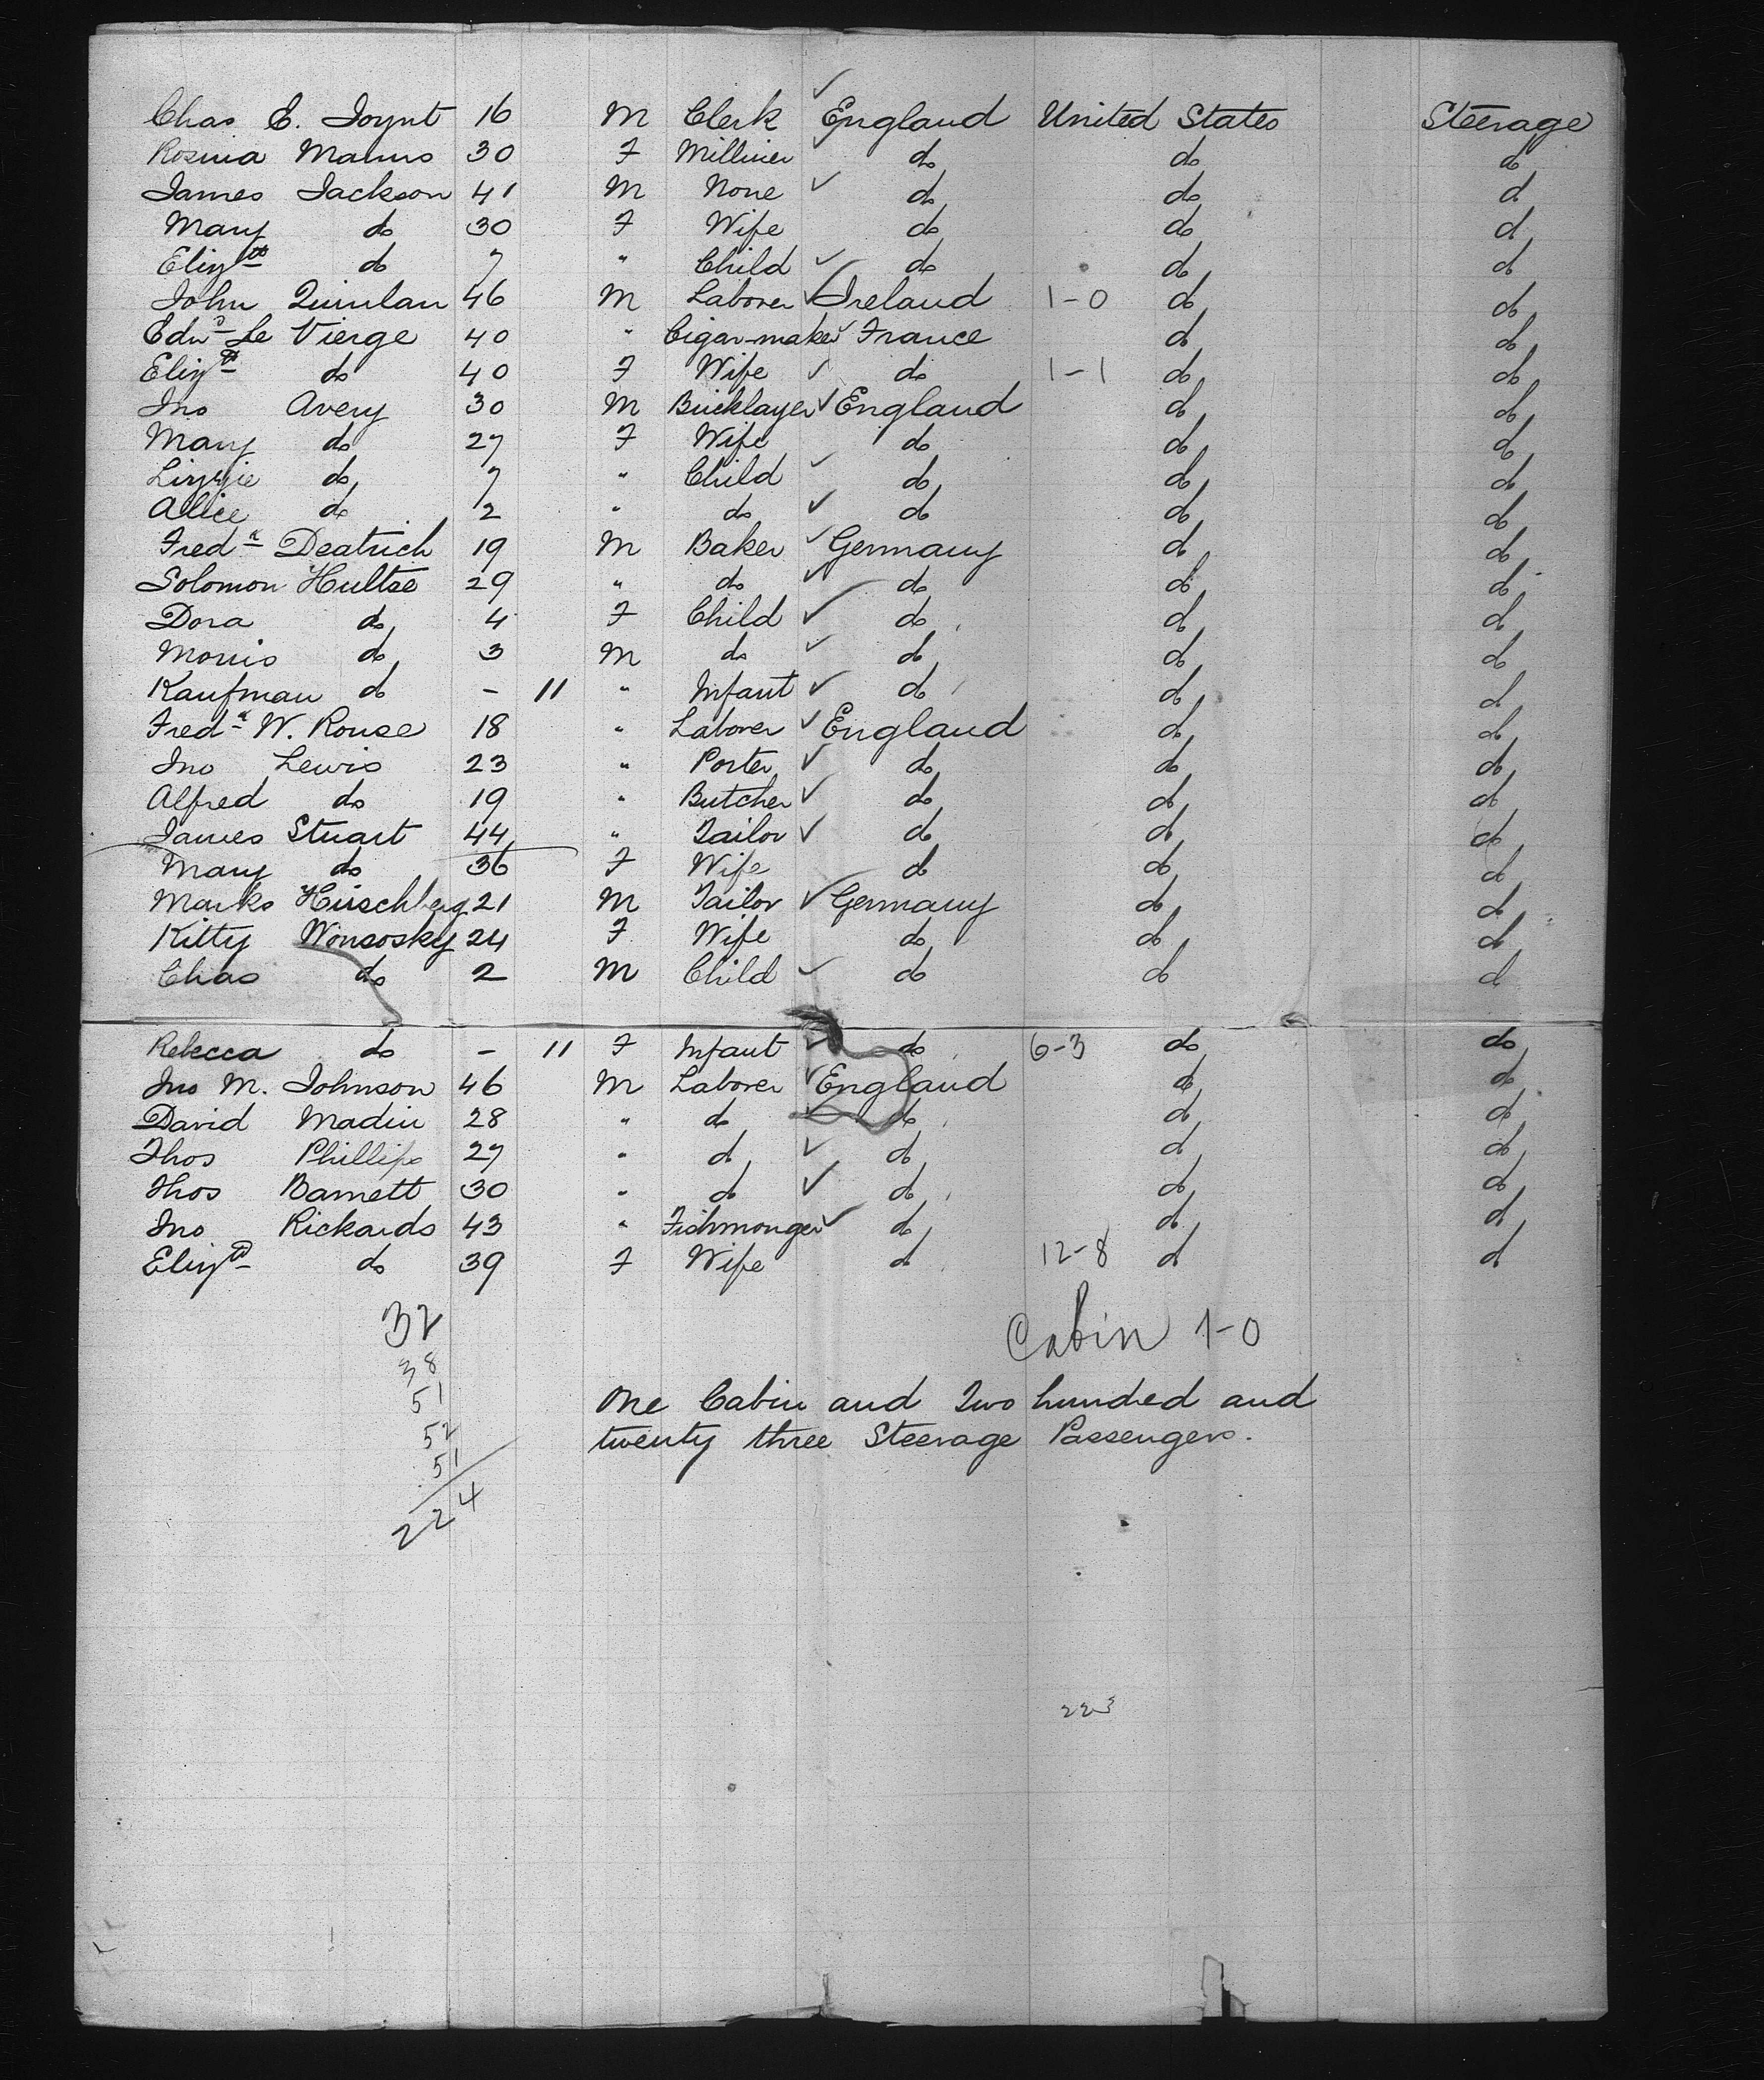 Chas E. Joynt 16 M Clerk ✓ England United States Steerage
Rosina Manns 30 F Milliner ✓ do do do
James Jackson 41 M None ✓ do do do
Mary do 30 F Wife do do do
Elizth do 7 " Child ✓ do do do
John Quinlan 46 M Laborer ✓ Ireland 1-0 do do
Edwd Le Vierge 40 " Cigar-maker ✓ France do do
Elizth do 40 F Wife ✓ do 1-1 do do
Jno Avery 30 M Bricklayer ✓ England do do
Mary do 27 F Wife do do do
Lizzie do 7 " Child ✓ do do do
Alice do 2 " do ✓ do do do
Fredk Deatrich 19 M Baker ✓ Germany do do
Solomon Hultse 29 " do ✓ do do do
Dora do 4 F Child ✓ do do do
Morris do 3 M do ✓ do do do
Kaufman do - 11 " Infant ✓ do do do
Fredk W. Rouse 18 " Laborer ✓ England do do
Jno Lewis 23 " Porter ✓ do do do
Alfred do 19 " Butcher ✓ do do do
James Stuart 44 " Tailor ✓ do do do
Mary do 36 F Wife do do do
Marks Hirschberg 21 M Tailor ✓ Germany do do
Kitty Wonsosky 24 F Wife do do do
Chas do 2 M Child ✓ do do do
Rebecca do - 11 F Infant ✓ do 6-3 do do
Jno M. Johnson 46 M Laborer ✓ England do do
David Madin 28 " do ✓ do do do
Thos Phillips 27 " do ✓ do do do
Thos Barnett 30 " do ✓ do do do
Jno Rickards 43 " Fishmonger ✓ do do do
Elizth do 39 F Wife do 12-8 do do
32
Cabin 1-0
38
51
One Cabin and Two hundred and
52
twenty three Steerage Passengers.
51
224
223